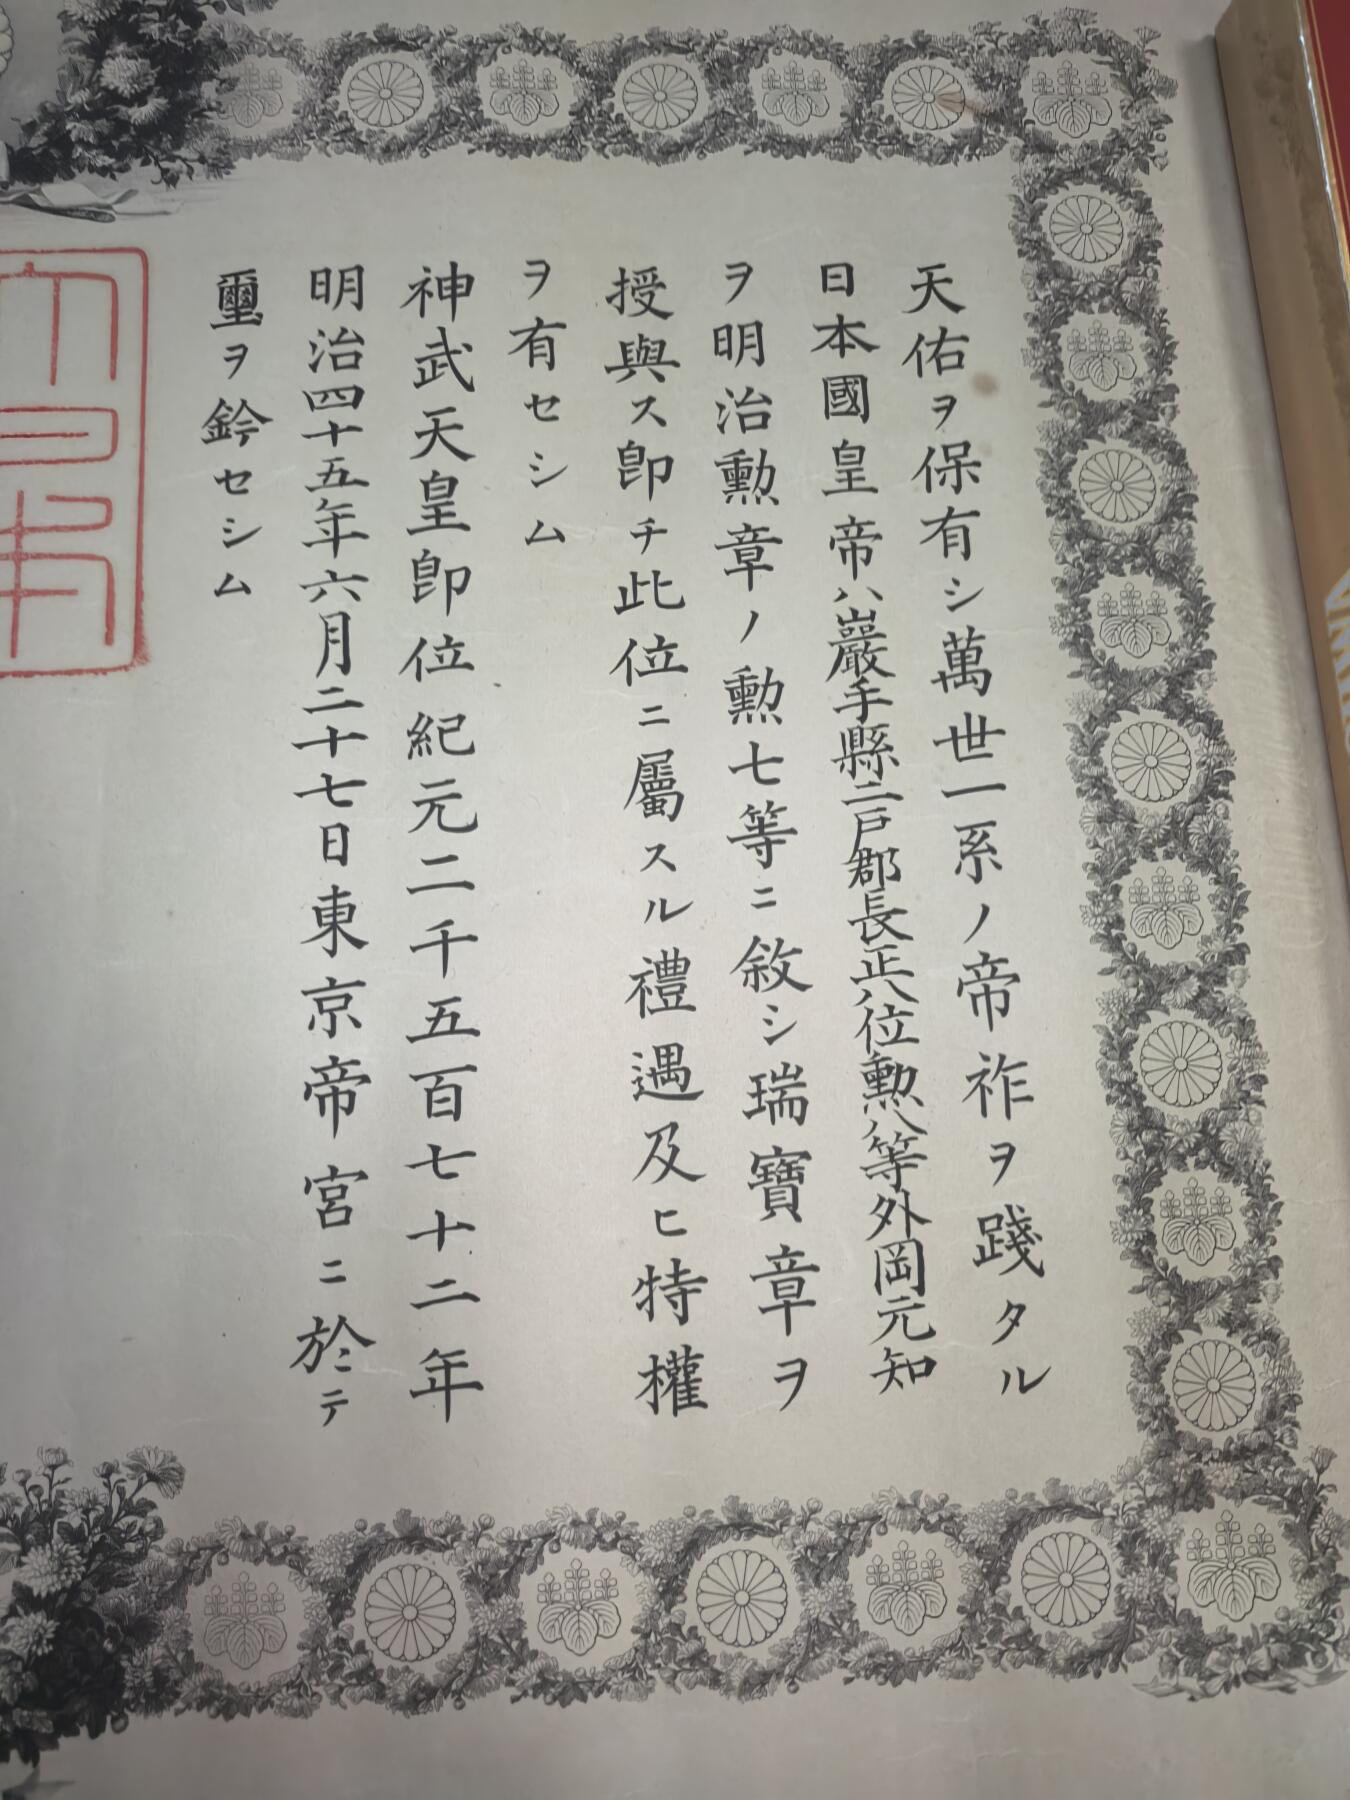 天佑ヲ保有シ萬世一系ノ帝祚ヲ踐タル
日本國皇帝ハ巖手縣二戸郡長正八位勲八等外岡元知
ヲ明治勲章ノ勲七等ニ敘シ瑞寶章ヲ
授與ス卽チ此位ニ屬スル禮遇及ヒ特權
ヲ有セシム
神武天皇卽位紀元二千五百七十二年
明治四十五年六月二十七日東京帝宮ニ於テ
璽ヲ鈐セシム